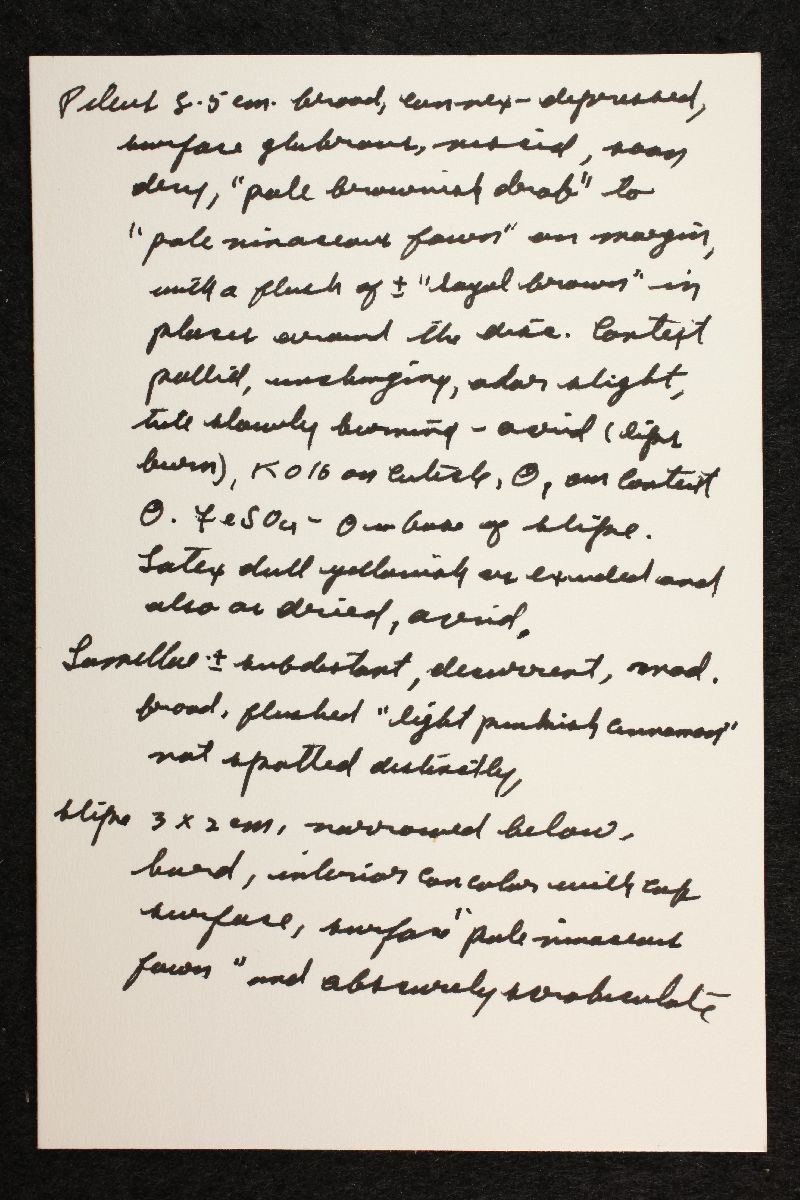 Pileus 8.5 cm. broad, convex-depressed,
surface glabrous, viscid, soon
dry, "pale brownish drab" to
"pale vinaceous fawn" on margin,
with a flush of ± "hazel brown" in
places around the disc. Context
pallid, unchanging, odor slight,
taste slowly burning-acrid (lips
burn), KOH on cuticle, Θ, on context
Θ. FeSO4 - Θ on base of stipe.
Latex dull yellowish as exuded and
also as dried, acrid.
Lamellae ± subdistant, decurrent, mod.
broad, flushed "light pinkish cinnamon"
not spotted distinctly,
Stipe 3 x 2 cm, narrowed below,
hard, interior concolor with cap
surface, surface "pale vinaceous
fawn" and obscurely scrobiculate